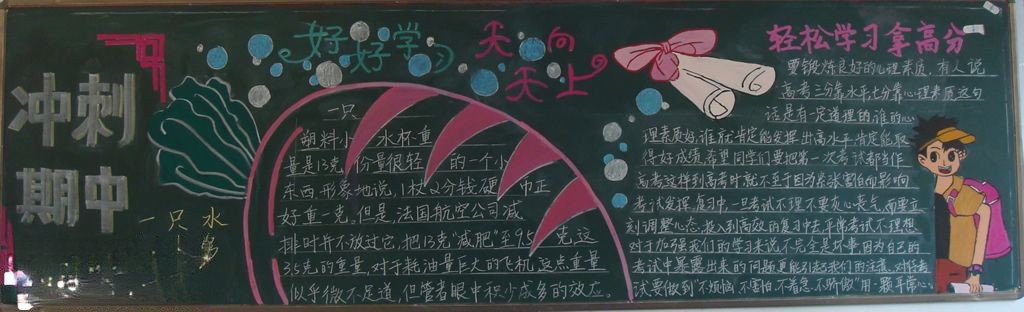 冲刺
期中
好好学习
天天向上
轻松学习拿高分
一只水
一只
塑料小 水杯 重
量是13克 份量很轻 的一个小
东西 形象地说，1枚 分钱硬 币正
好重一克，但是，法国航空公司减
排时并不放过它，把13克"减肥"至9.5 克，这
3.5克的重量，对于耗油量巨大的飞机，这点重量
似乎微不足道，但管者眼中积少成多的效应。
要锻炼良好的心理素质，有人说
高考三分靠水平七分靠心理素质这句
话是有一定道理的，谁的心
理素质好，谁就肯定能发挥出高水平肯定能取
得好成绩，希望同学们要把第一次考试都当作
高考这样到高考时就不至于因为紧张害怕而影响
考试发挥 复习中，一旦考试不理不要灰心丧气，而要立
刻调整心态，投入到高效的复习中去，平常考试不理想
对于加强我们的学习来说不完全是坏事因为自己的
考试中暴露出来的问题更能引起我们的注意，对任
次要做到"不烦恼，不害怕，不着急，不骄傲"用一颗平常心。